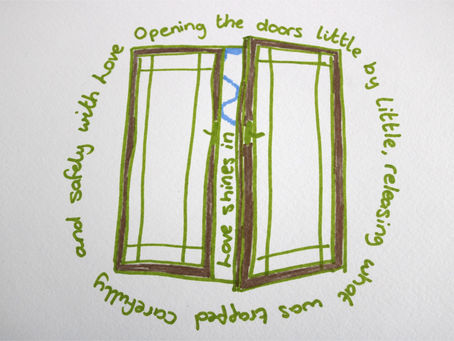 Opening the doors little by little, releasing what was trapped carefully and safely with Love
Love shines in